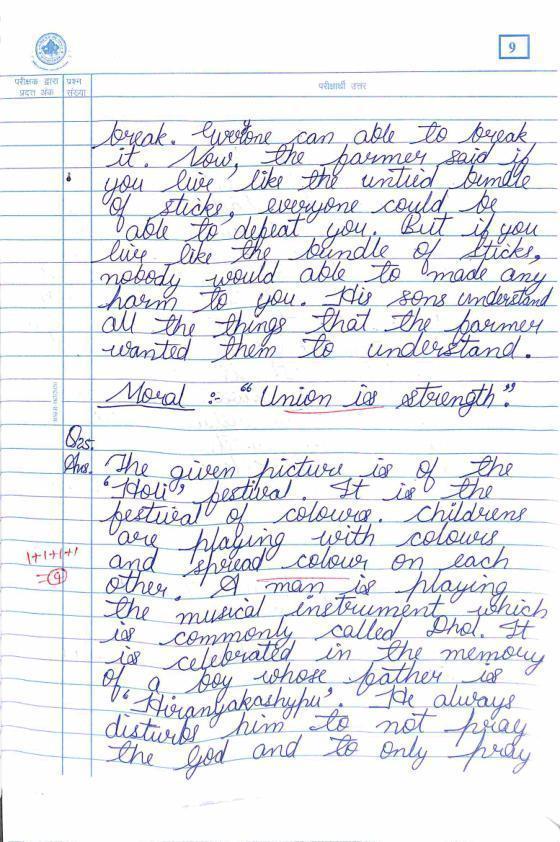 9
परीक्षक द्वारा प्रदत्त अंक
प्रश्न संख्या
परीक्षार्थी उत्तर
break. Everyone can able to break
it. Now, the farmer said if
you live like the untied bundle
of sticks, everyone could be
able to defeat you. But if you
live like the bundle of sticks,
nobody would able to made any
harm to you. His sons understand
all the things that the farmer
wanted them to understand.
Moral :- "Union is strength".
Q25.
Ans. The given picture is of the
'Holi' festival. It is the
festival of colours. Childrens
are playing with colours
1+1+1+1
and spread colour on each
=4
other. A man is playing
the musical instrument which
is commonly called Dhol. It
is celebrated in the memory
of a boy whose father is
"Hiranyakashypu". He always
disturbs him to not pray
the God and to only pray